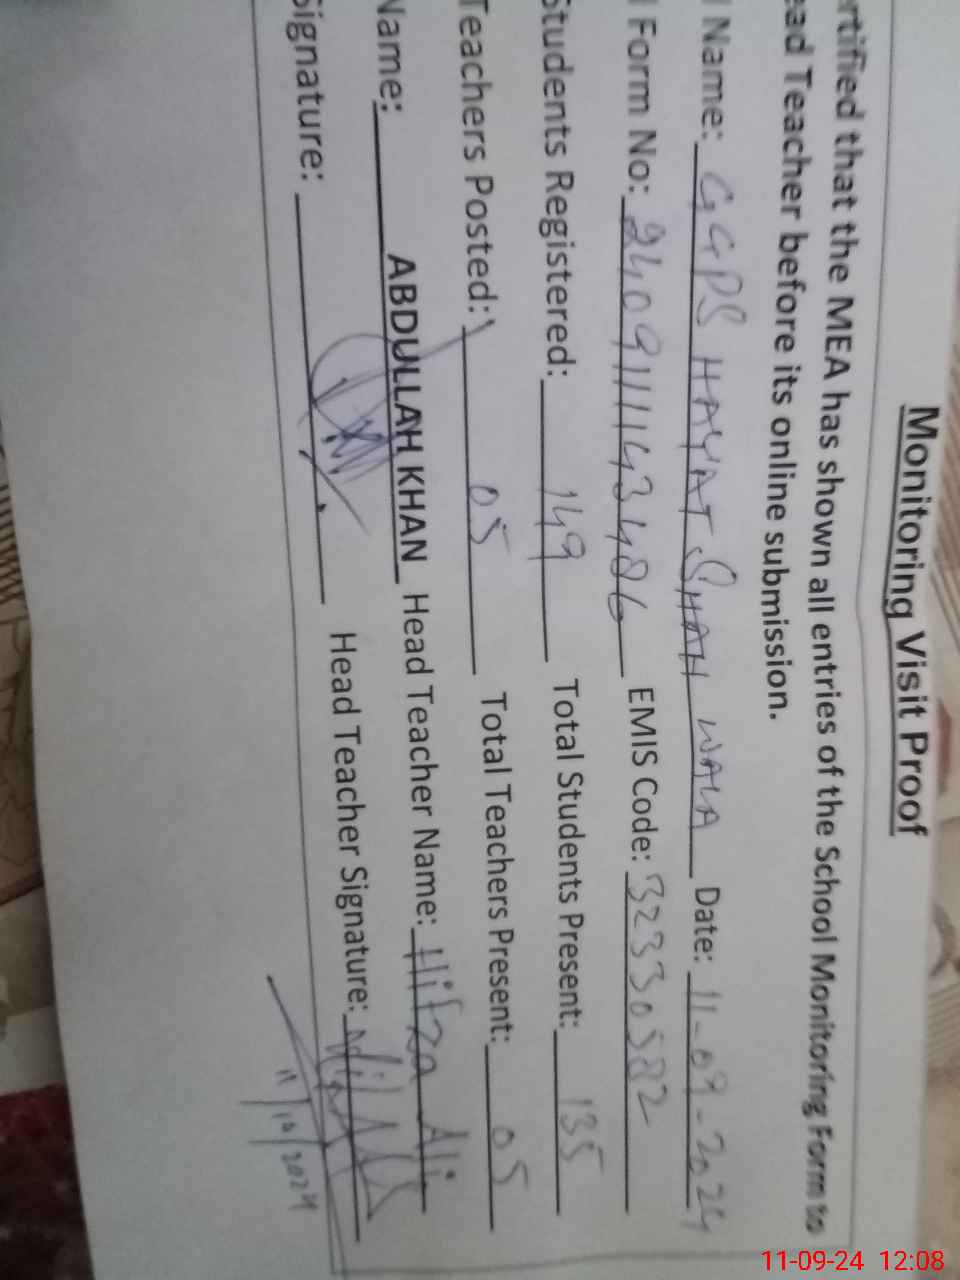 Monitoring Visit Proof
rtified that the MEA has shown all entries of the School Monitoring Form to
ead Teacher before its online submission.
l Name: GGPS HAYAT SHAH WALA Date: 11-09-2024
l Form No: 2409111143486 EMIS Code: 32330582
Students Registered: 149 Total Students Present: 135
Teachers Posted: 05 Total Teachers Present: 05
Name: ABDULLAH KHAN Head Teacher Name: Hifza Ali
Signature: Head Teacher Signature:
11/10/2024
11-09-24 12:08